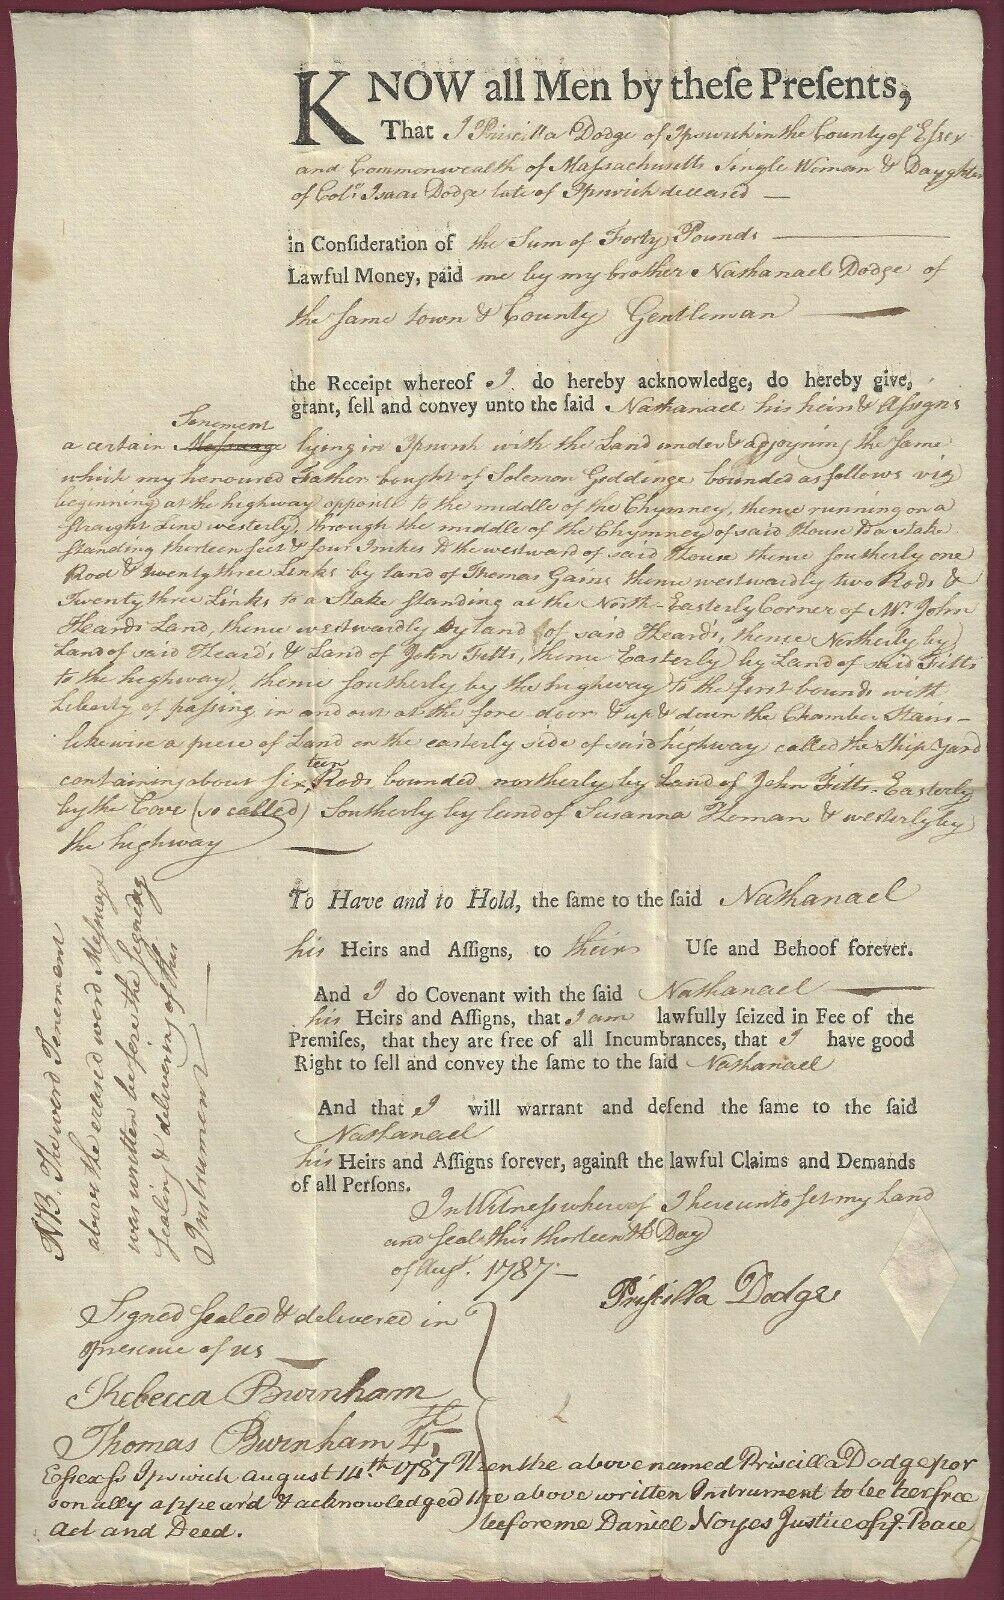 KNOW all Men by theſe Preſents,
That I Priscilla Dodge of Ipswich in the County of Eſsex
and Commonwealth of Massachusetts Single Woman & Dayghter
of Colº. Isaac Dodge late of Ipswich deceased —
in Conſideration of the Sum of Forty Pounds
Lawful Money, paid me by my brother Nathanael Dodge of
the same town & County Gentleman
the Receipt whereof I do hereby acknowledge, do hereby give,
grant, ſell and convey unto the ſaid Nathanael his heirs & Aſsigns
Tenement
a certain Meſsuage lying in Ipswich with the Land under & adjoyning the same
which my honoured Father bought of Solomon Giddinge bounded as follows viz
beginning at the highway opposite to the middle of the Chymney, thence running on a
straight Line westerly, through the middle of the Chymney of said House to a stake
standing thirteen feet & four Inches to the westward of said House thence southerly one
Rod & twenty three Links by land of Thomas Gains thence westwardly two Rods &
Twenty three Links to a Stake standing at the North-Easterly Corner of Mr. John
Heards Land, thence westwardly by land of said Heard's, thence Northerly by
Land of said Heard's, & Land of John Fitts, thence Easterly by Land of said Fitts
to the highway, thence southerly by the highway to the first bounds with
liberty of passing in and out at the fore door & up & down the Chamber Stairs—
likewise a piece of Land on the easterly side of said highway called the Ship Yard
teen
containing about six Rods bounded northerly by Land of John Fitts - Easterly
by the Cove (so called) Southerly by land of Susanna Homan & westerly by
the highway
To Have and to Hold, the ſame to the ſaid Nathanael
his Heirs and Aſſigns, to theirs Uſe and Behoof forever.
And I do Covenant with the ſaid Nathanael
his Heirs and Aſſigns, that I am lawfully ſeized in Fee of the
Premiſes, that they are free of all Incumbrances, that I have good
Right to ſell and convey the ſame to the ſaid Nathanael
And that I will warrant and defend the ſame to the ſaid
Nathanael
his Heirs and Aſſigns forever, againſt the lawful Claims and Demands
of all Perſons.
In Witneſs whereof I hereunto set my hand
and seal this thirteenth Day
of Augt. 1787—
Priſcilla Dodge
NB. The word Tenement
above the erased word Meſsuage
was written before the signing
sealing & delivering of this
Instrument
Signed sealed & delivered in
presence of us
Rebecca Burnham
Thomas Burnham 4th
Eſsex ſs Ipswich august 14th 1787 Then the above named Priscilla Dodge per
sonally appeard & acknowledged the above written Instrument to be her free
act and Deed. before me Daniel Noyes Justice of ye. Peace